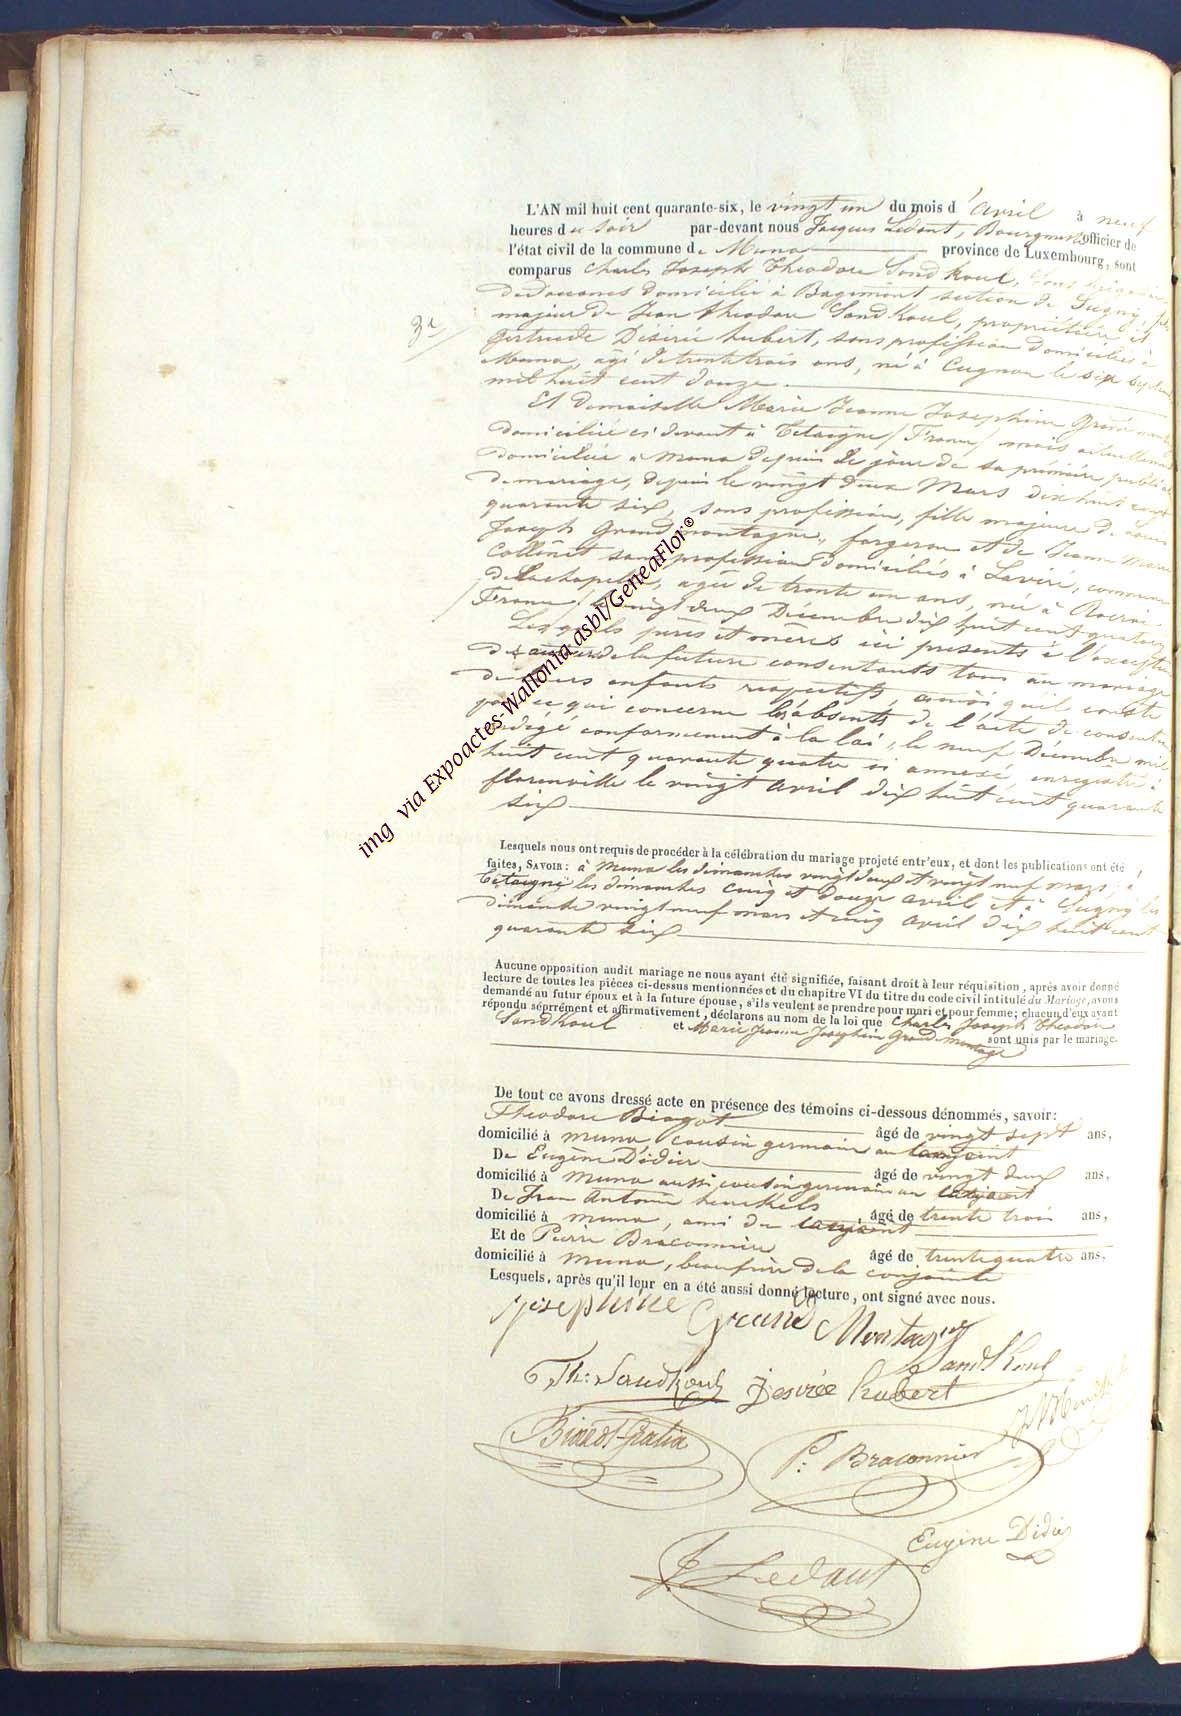 L'AN mil huit cent quarante-six, le vingt un du mois d'avril à neuf
heures du soir par-devant nous Jacques Ledant, Bourgmestre officier de
l'état civil de la commune de Muno province de Luxembourg, sont
comparus Charles Joseph Théodore Sandkoul,
de Douanes domicilié à Bagimont section de Sugny, fils
majeur de Jean Théodore Sandkoul, propriétaire, et
3e
Gertrude Désirée hubert, sans profession domiciliés à
Muno, agé de trente trois ans, né à Cugnon le six septembre
mil huit cent douze.
Et demoiselle Marie Jeanne Josephine Grand montagne
domiciliée ci devant à Tétaigne / France / mais actuellement
domiciliée à Muno depuis le jour de sa première publication
de mariage, depuis le vingt deux Mars dix huit cent
quarante six, sans profession, fille majeure de Louis
Joseph Grand montagne, forgeron et de Jeanne Marie
Collinet sans profession domiciliés à commune
de Lachapelle, agée de trente un ans, née à Rocroi
/ France / le vingt deux Décembre dix huit cent quatorze
Lesquels pères et mères ici présents à l'exception
de de la future consentants tous au mariage
de leurs enfants respectifs, ainsi qu'il conste
pour ce qui concerne les absents de l'acte de consentement
rédigé conformément à la loi, le neuf Décembre mil
huit cent quarante quatre ci annexé, enregistré à
florenville le vingt avril dix huit cent quarante
six
Lesquels nous ont requis de procéder à la célébration du mariage projeté entr'eux, et dont les publications ont été
faites, SAVOIR : à Muno les dimanches vingt deux et vingt neuf mars, à
Tétaigne les dimanches cinq et douze avril et à Sugny les
dimanche vingt neuf mars et cinq avril dix huit cent
quarante six
Aucune opposition audit mariage ne nous ayant été signifiée, faisant droit à leur réquisition, après avoir donné
lecture de toutes les pièces ci-dessus mentionnées et du chapitre VI du titre du code civil intitulé du Mariage, avons
demandé au futur époux et à la future épouse, s'ils veulent se prendre pour mari et pour femme; chacun d'eux ayant
répondu séprrément et affirmativement, déclarons au nom de la loi que Charles Joseph Théodore
Sandkoul et Marie Jeanne Josephine Grand-montagne sont unis par le mariage.
De tout ce avons dressé acte en présence des témoins ci-dessous dénommés, savoir:
Théodore Biazot âgé de vingt sept ans,
domicilié à Muno, cousin germain au conjoint
De Eugène Didier âgé de vingt deux ans,
domicilié à Muno aussi cousin germain au conjoint
De Jean Antoine henckels âgé de trente trois ans,
domicilié à Muno, ami du conjoint
Et de Pierre Braconnier âgé de trente quatre ans,
domicilié à Muno, beau frère de la conjointe
Lesquels, après qu'il leur en a été aussi donné lecture, ont signé avec nous.
Josephine Grand Montagne
Sandkoul
Th: Sandkoul Desirée hubert
P: Braconnier
Eugène Didier
J. Ledant
img via Expoactes-Wallonia asbl/GeneaFlor®